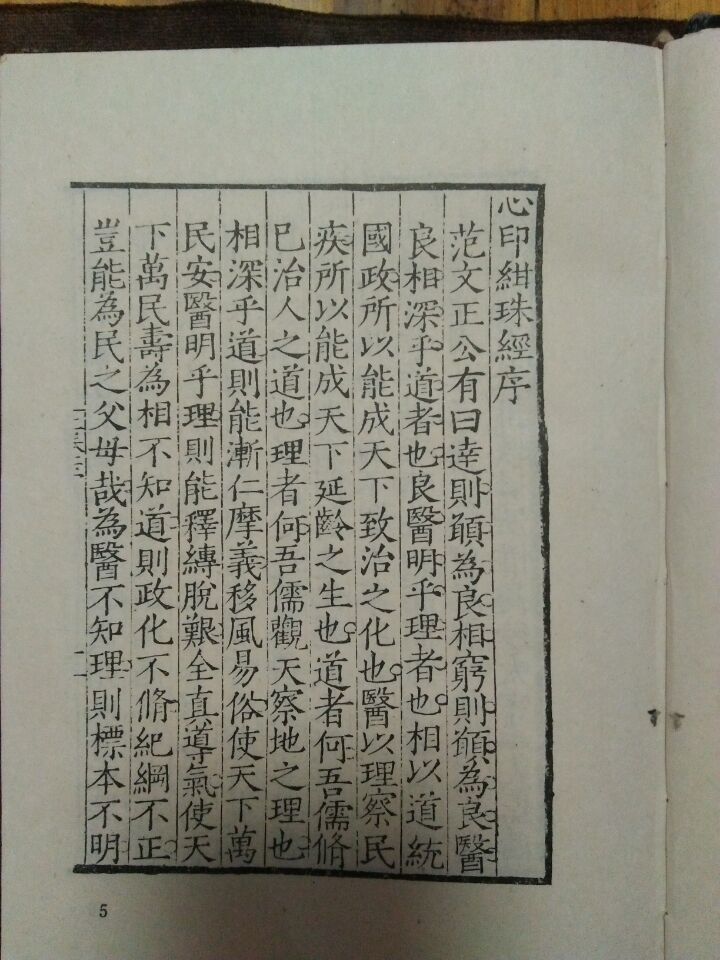 心印紺珠經序
范文正公有曰達則願為良相窮則願為良醫
良相深乎道者也良醫明乎理者也相以道統
國政所以能成天下致治之化也醫以理察民
疾所以能成天下延齡之生也道者何吾儒脩
已治人之道也理者何吾儒觀天察地之理也
相深乎道則能漸仁摩義移風易俗使天下萬
民安醫明乎理則能釋縳脫艱全真導氣使天
下萬民壽為相不知道則政化不脩紀綱不正
豈能為民之父母哉為醫不知理則標本不明
5